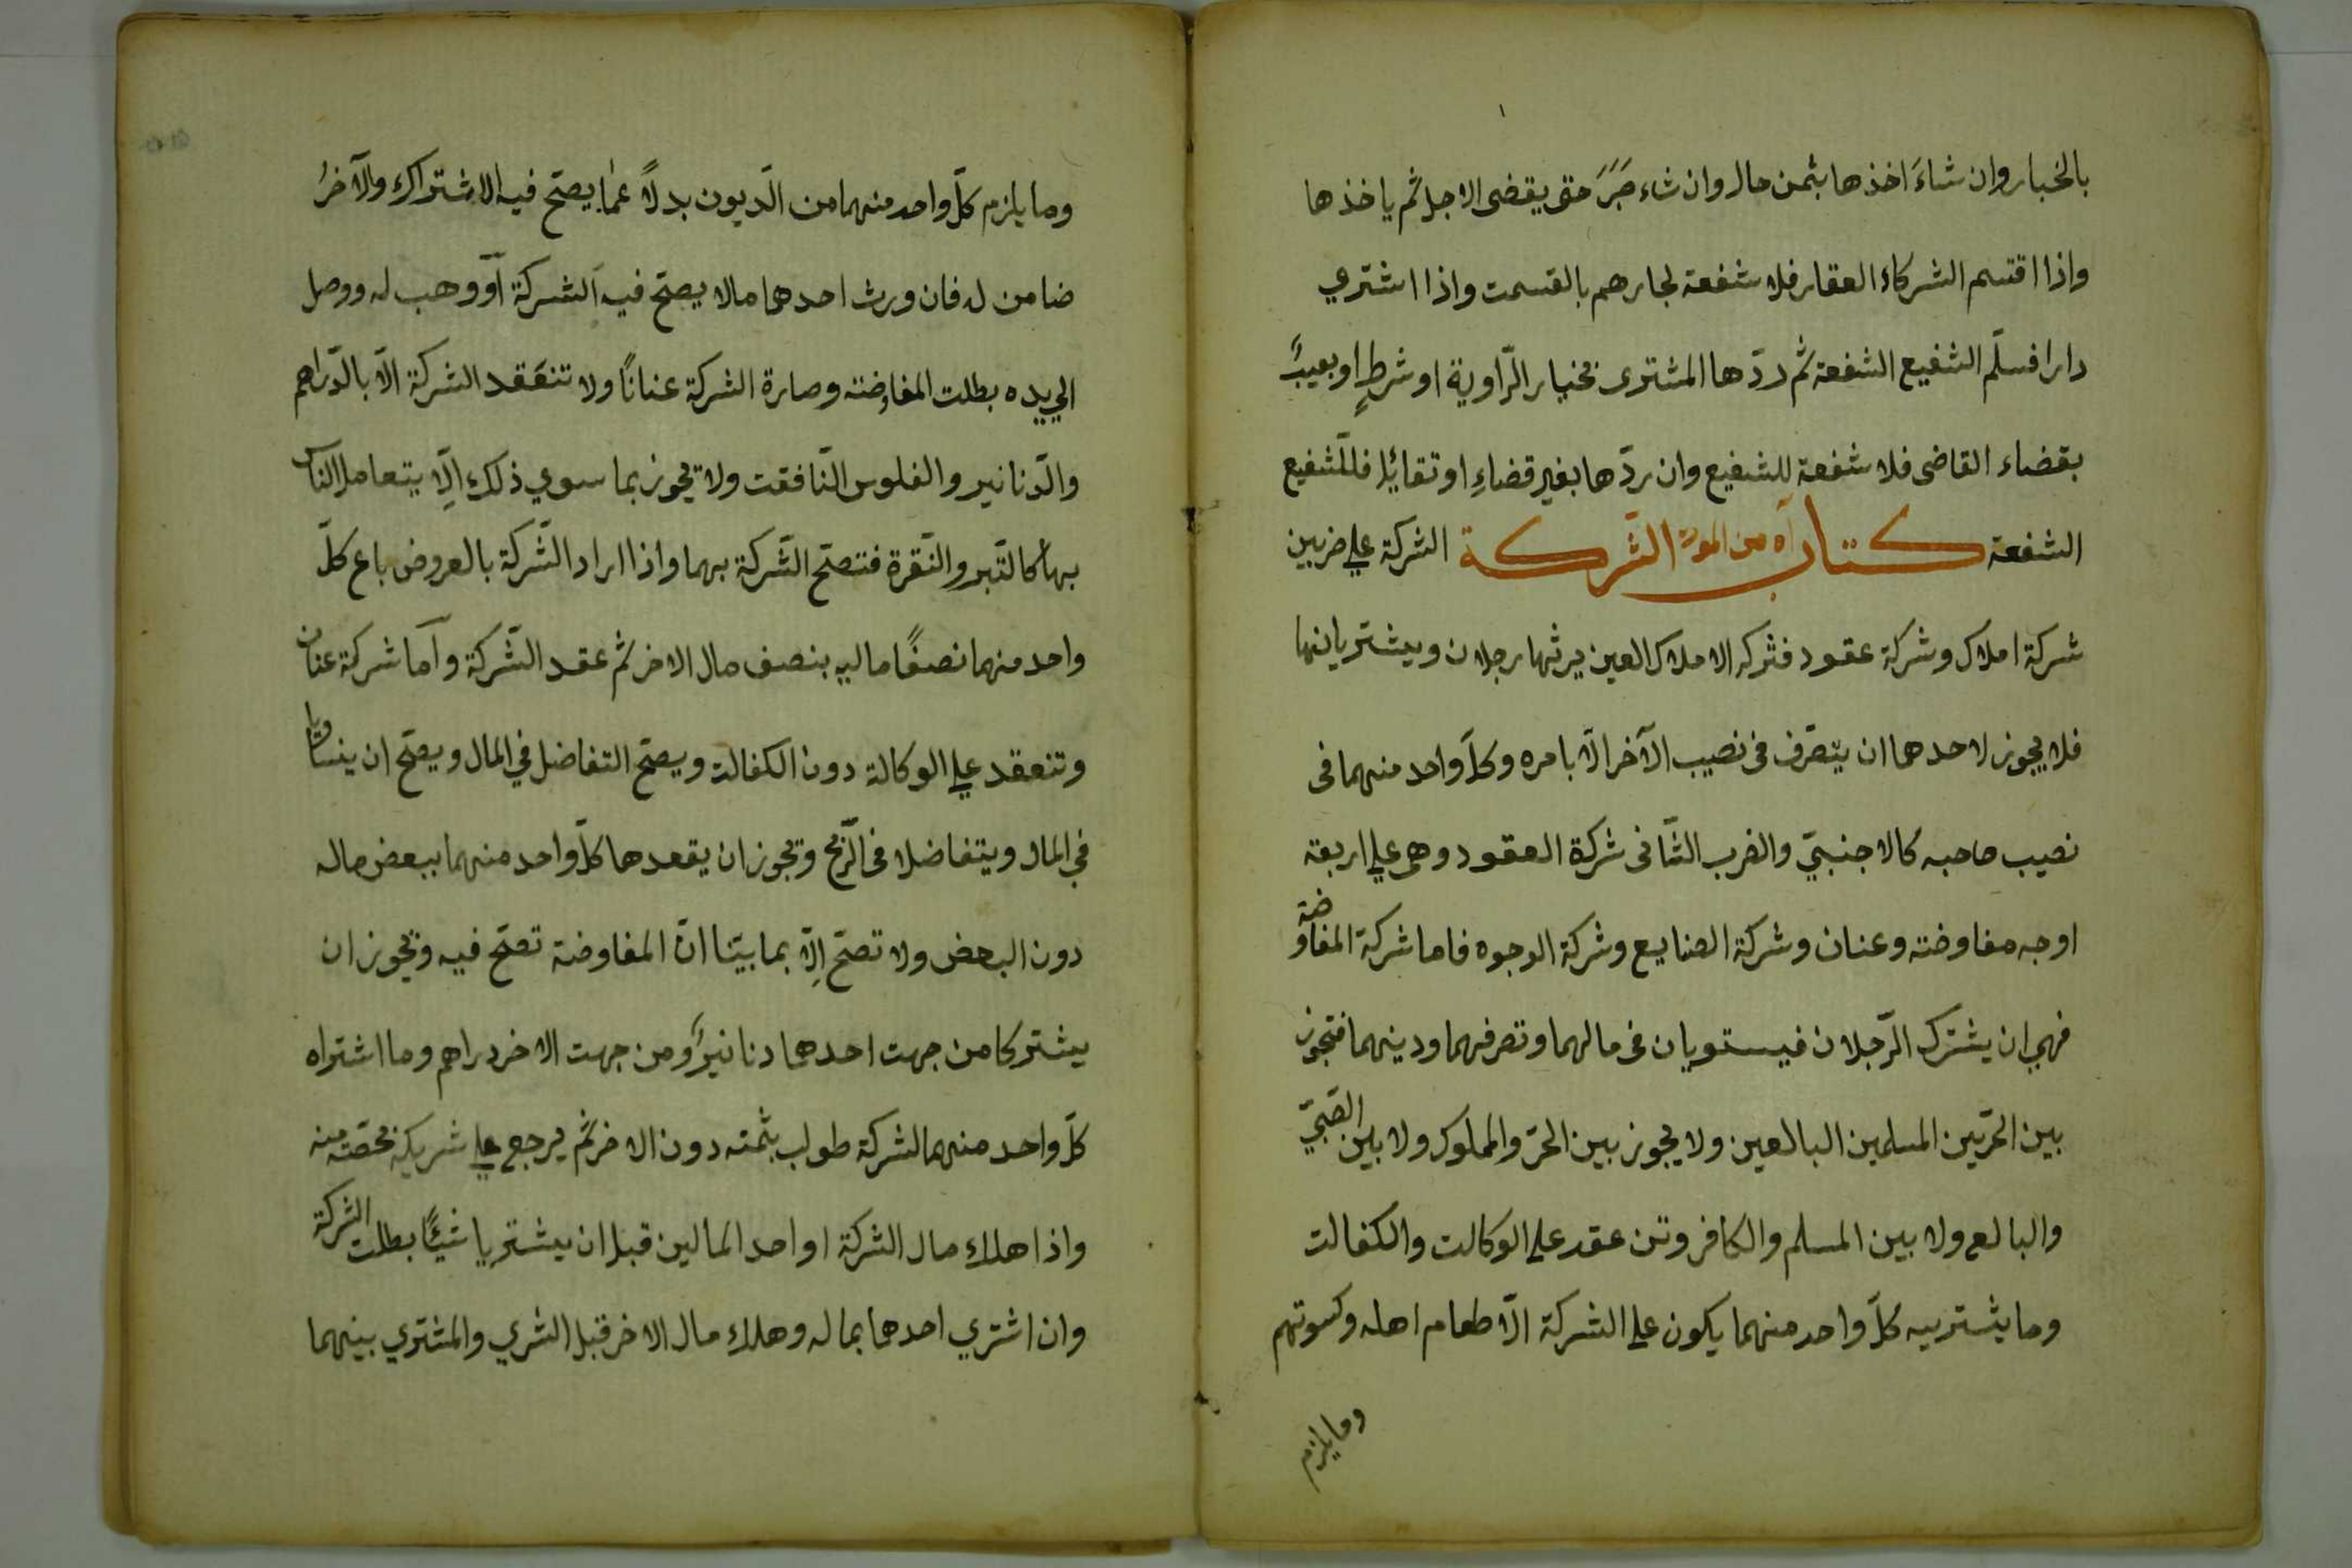 بالخيار وان شاءَ اخذها بثمن حال وان شاء صَبَرَ حتى يقضى الاجل ثم ياخذها
واذا اقتسم الشركاء العقار فلا شفعة لجارهم بالقسمت واذا اشتري
دارا فسلّم الشفيع الشفعة ثم ردّها المشترى بخيار الرّاوية او شرطٍ او بعيبٍ
بقضاء القاضى فلا شفعة للشفيع وان ردّها بغير قضاءٍ او تقائلا فللشفيع
الشفعة كتاب الشّركة الشركة على ضربين
شركة املاك وشركة عقود فشركه الاملاك العين يرثها رجلان ويشتريانها
فلا يجوز لاحدهما ان يتصّرف فى نصيب الآخر الّا بامره وكلّ واحد منهما فى
نصيب صاحبه كالاجنبيّ والضرب الثّانى شركة العقود وهى على اربعة
اوجه مفاوضته وعنان وشركة الصنايع وشركة الوجوه فاما شركة المفاوضة
فهي ان يشترك الرّجلان فيستويان فى مالهما وتصرفهما ودينهما فتجوز
بين الحرّين المسلمين البالغين ولا يجوز بين الحرّ والمملوك ولا بين الصّبيّ
والبالغ ولا بين المسلم والكافر وتن عقد على الوكالت والكفالت
وما يشتريه كلّ واحد منهما يكون على الشركة الّا طعام اهله وكسوتهم
وما يلزم
وما يلزم كلّ واحد منهما من الّديون بدلاً عمّا يصحّ فيه الاشتراك والآخرُ
ضامن له فان ورث احدهما مالا يصحّ فيه الشركة أو وهب له ووصل
الي يده بطلت المفاوضته وصارة الشركة عناناً ولا تنعَقد الشركة الّا بالدّراهم
والّدنانير والفلوس النّافقت ولا تجوز بما سوي ذلك الّا يتعامل الناس
بها كالتّبر والنّقرة فتصّح الشّركة بهما واذا اراد الشّركة بالعروض باع كلّ
واحد منهما نصفًا ماليه بنصف مال الاخر ثم عقد الشّركة وأما شركة عنان
وتنعقد على الوكالة دون الكفالت ويصحّ التفاضل في المال ويصحّ ان ينساويا
في المال ويتفاضلا فى الرّبح وتجوز ان يقعدها كلّ واحد منهما ببعض ماله
دون البعض ولا تصحّ الّا بما بيّنا انّ المفاوضة تصحّ فيه وتجوز ان
يشتركا من جهت احدهما دنانيرًا ومن جهت الاخر دراهم وما اشتراه
كلّ واحد منهما لشركة طولب بثمته دون الاخر ثم يرجع على شريكه بحصّته منه
واذا هلك مال الشركة او احد المالين قبل ان يشتريا شيئًا بطلت الشركة
وان اشتري احدهما بماله وهلك مال الاخر قبل الشري والمشتري بينهما